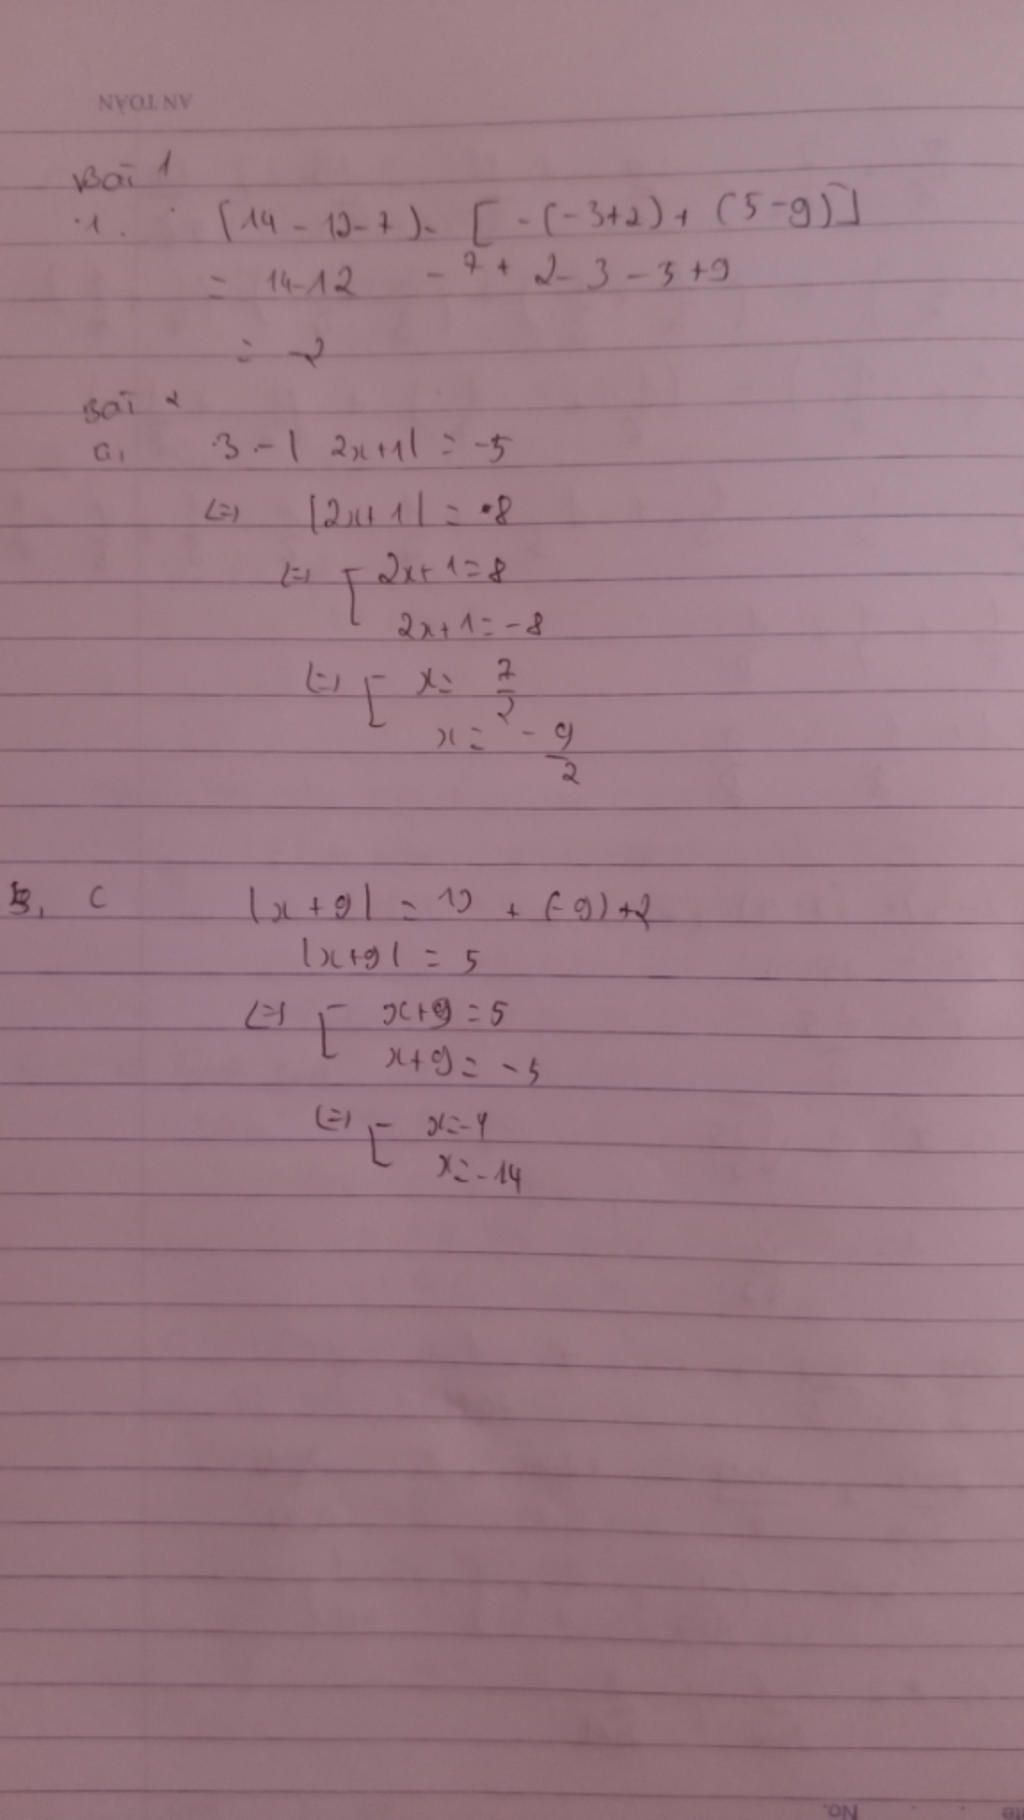 AN TOÀN
Bài 1
1. (14 - 12 - 7) - [ - (-3+2) + (5-9)]
= 14-12 - 7 + 2 - 3 - 5 + 9
= -2
Bài 2
a, 3 - | 2x+1| = -5
<=> |2x+1| = 8
<=> [ 2x+1=8
2x+1=-8
<=> [ x= 7/2
x= -9/2
B, C |x+9| = 12 + (-9)+2
|x+9| = 5
<=> [ x+9=5
x+9=-5
<=> [ x=-4
x=-14
No.